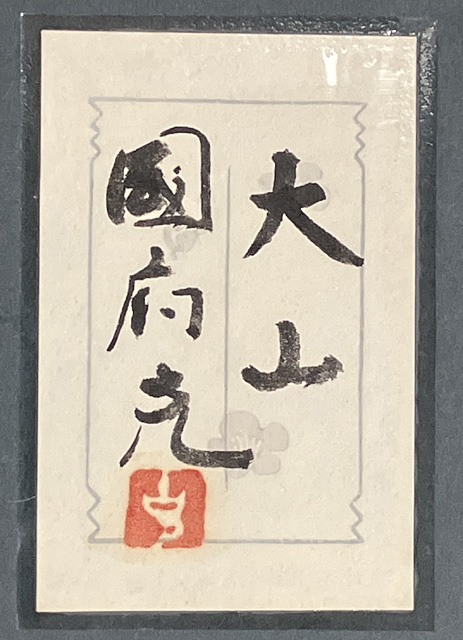 大山
國府克